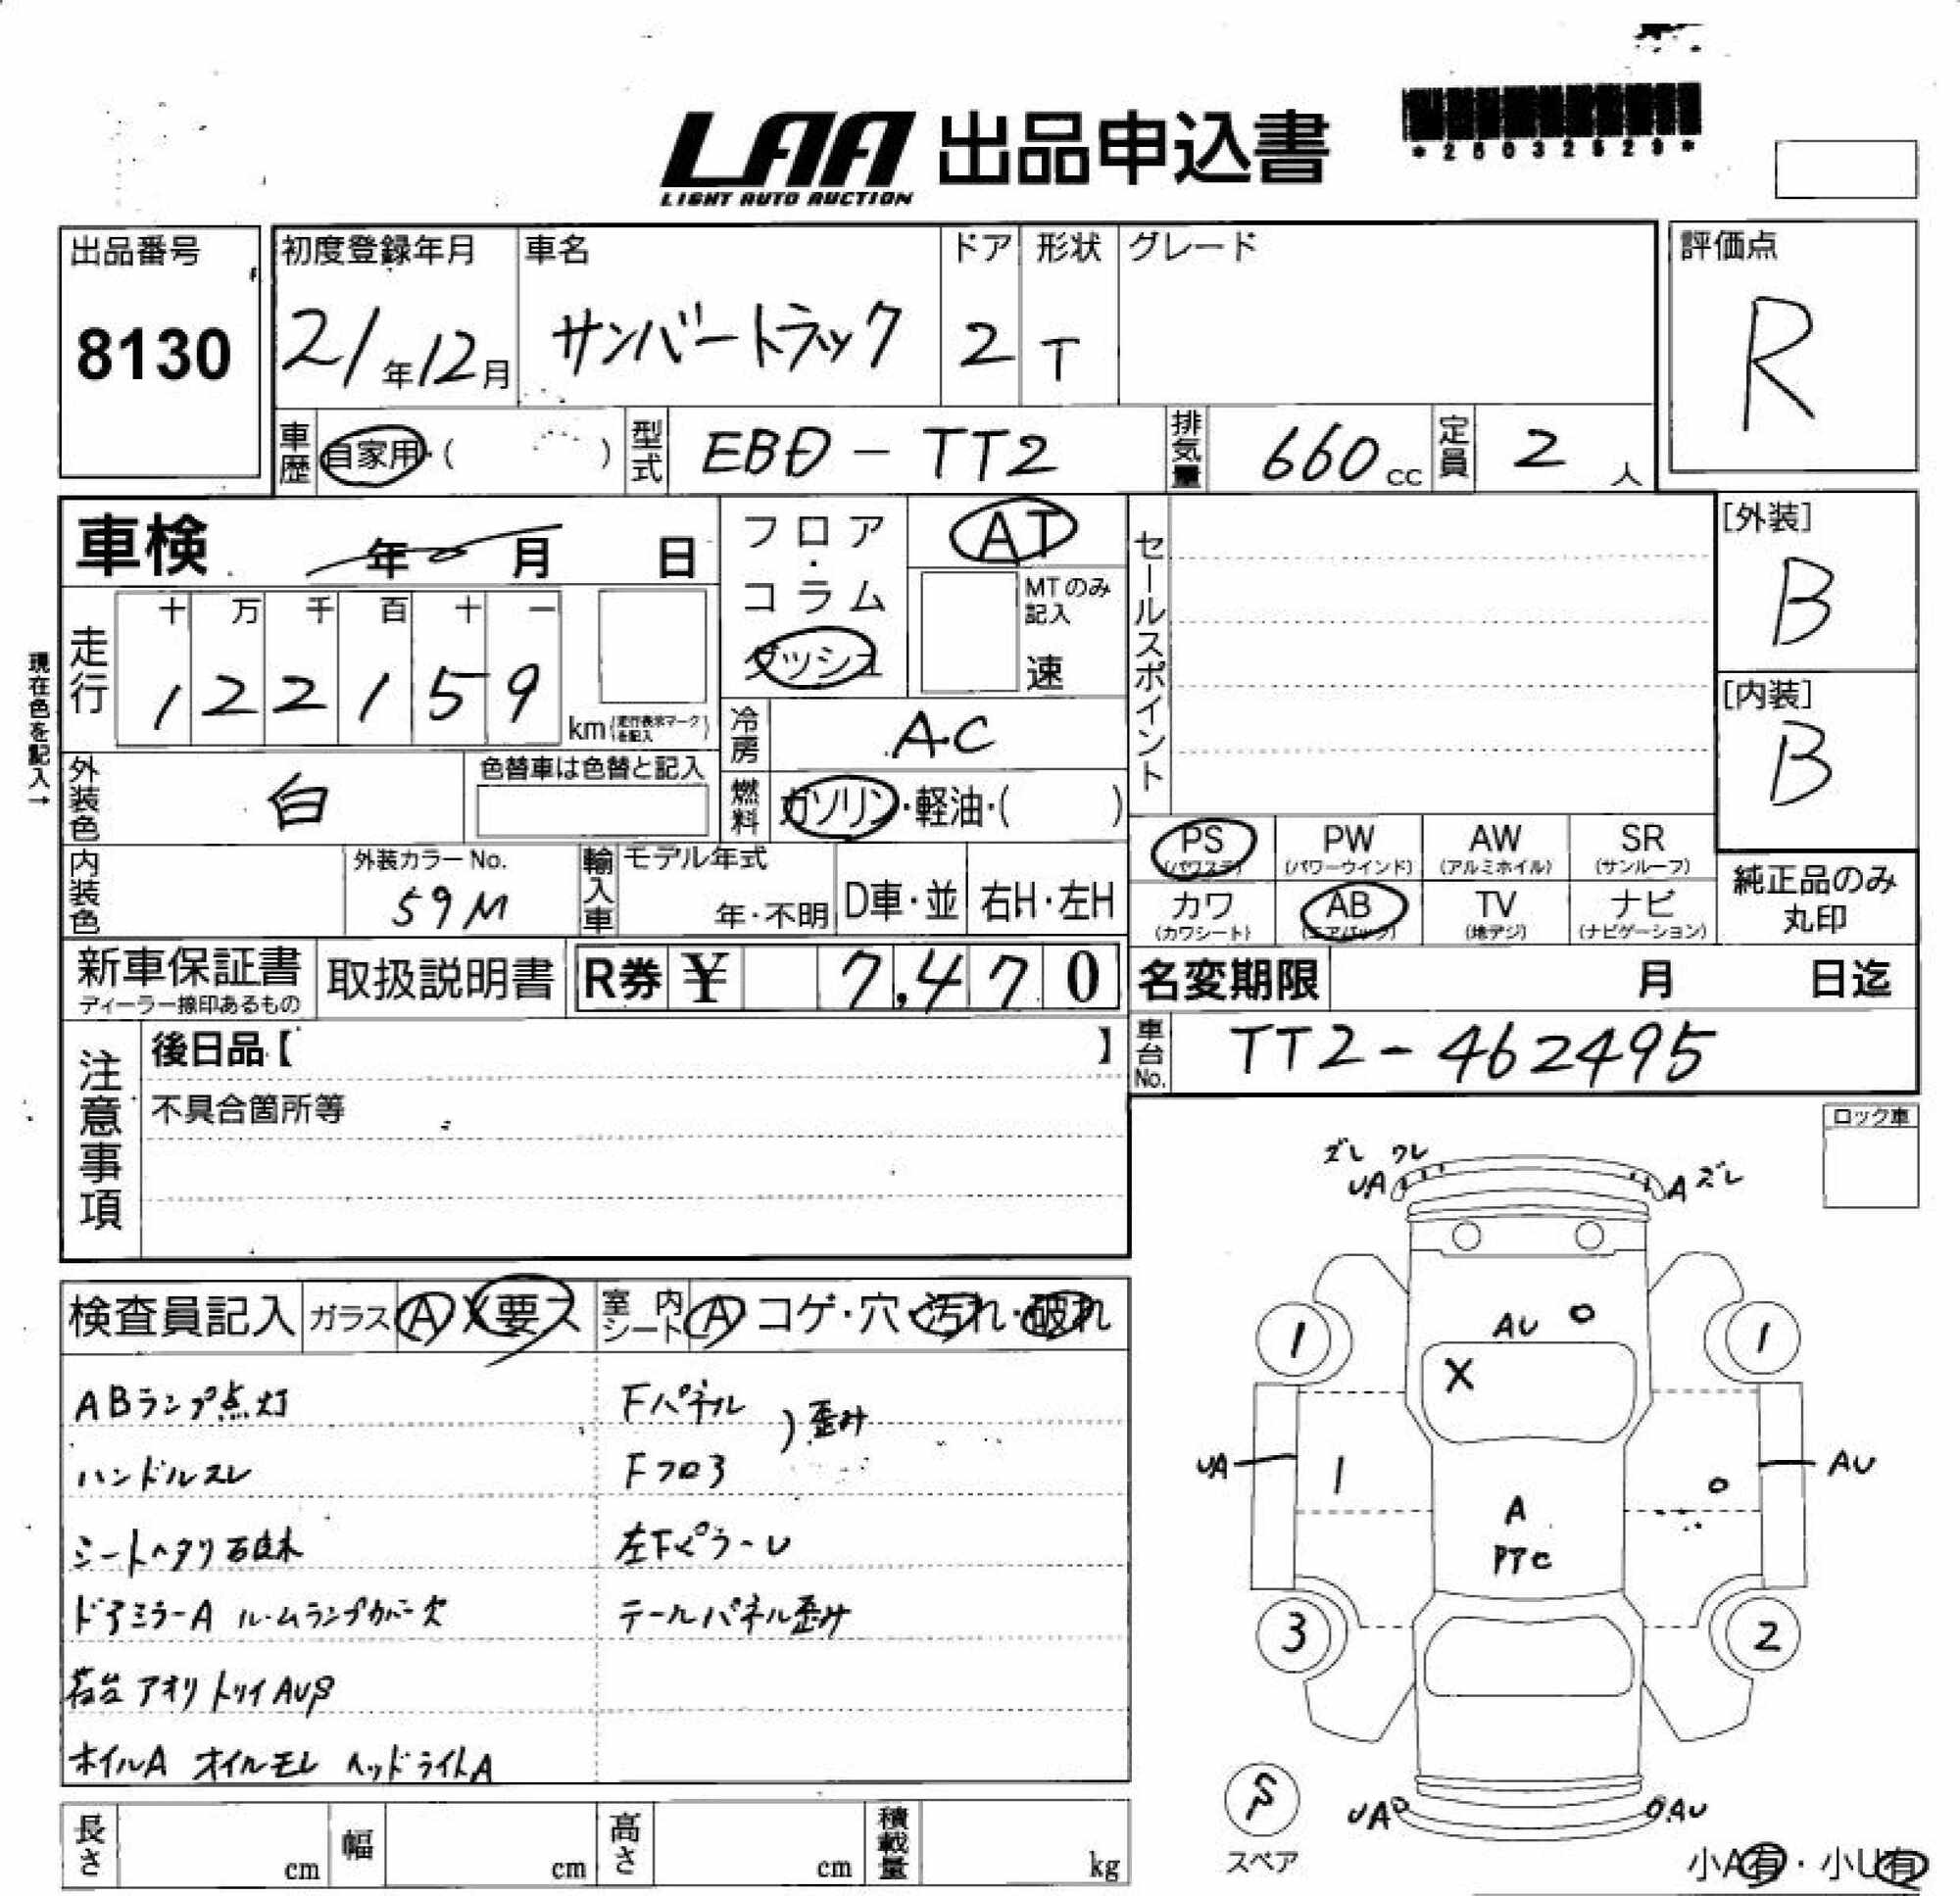 LAA 出品申込書
LIGHT AUTO AUCTION
出品番号
8130
初度登録年月
21年12月
車名
サンバートラック
ドア
2
形状
T
グレード
評価点
R
車歴
自家用・( )
型式
EBD-TT2
排気量
660cc
定員
2人
車検 年 月 日
現在色を記入→
走行
十 万 千 百 十 一
1 2 2 1 5 9
km(走行表示マークを記入)
フロア・コラム
ダッシュ
AT
MTのみ記入
速
冷房
A.C
燃料
ガソリン・軽油・( )
セールスポイント
[外装]
B
[内装]
B
外装色
白
色替車は色替と記入
内装色
外装カラーNo.
59M
輸入車
モデル年式
年・不明
D車・並
右H・左H
PS
(パワステ)
PW
(パワーウインド)
AW
(アルミホイル)
SR
(サンルーフ)
カワ
(カワシート)
AB
(エアバック)
TV
(地デジ)
ナビ
(ナビゲーション)
純正品のみ
丸印
新車保証書
ディーラー捺印あるもの
取扱説明書
R券 ¥ 7,470
名変期限 月 日迄
車台No.
TT2-462495
注意事項
後日品【 】
不具合箇所等
ロック車
検査員記入
ガラス A X 要ス
室内シート A コゲ・穴・汚れ・破れ
ABランプ点灯
ハンドルスレ
シートヘタリ
ドアミラーA ルームランプカバー欠
荷台 アオリ トリイ AU
ホイルA オイルモレ ヘッドライトA
Fパネル
Fフロア
)歪み
左Fピラーレ
テールパネル歪み
ズレ ワレ
UA
A ズレ
AU
X
1
1
UA
AU
A
PTC
3
2
UA
AU
スペア
小A有・小U有
長さ cm
幅 cm
高さ cm
積載量 kg